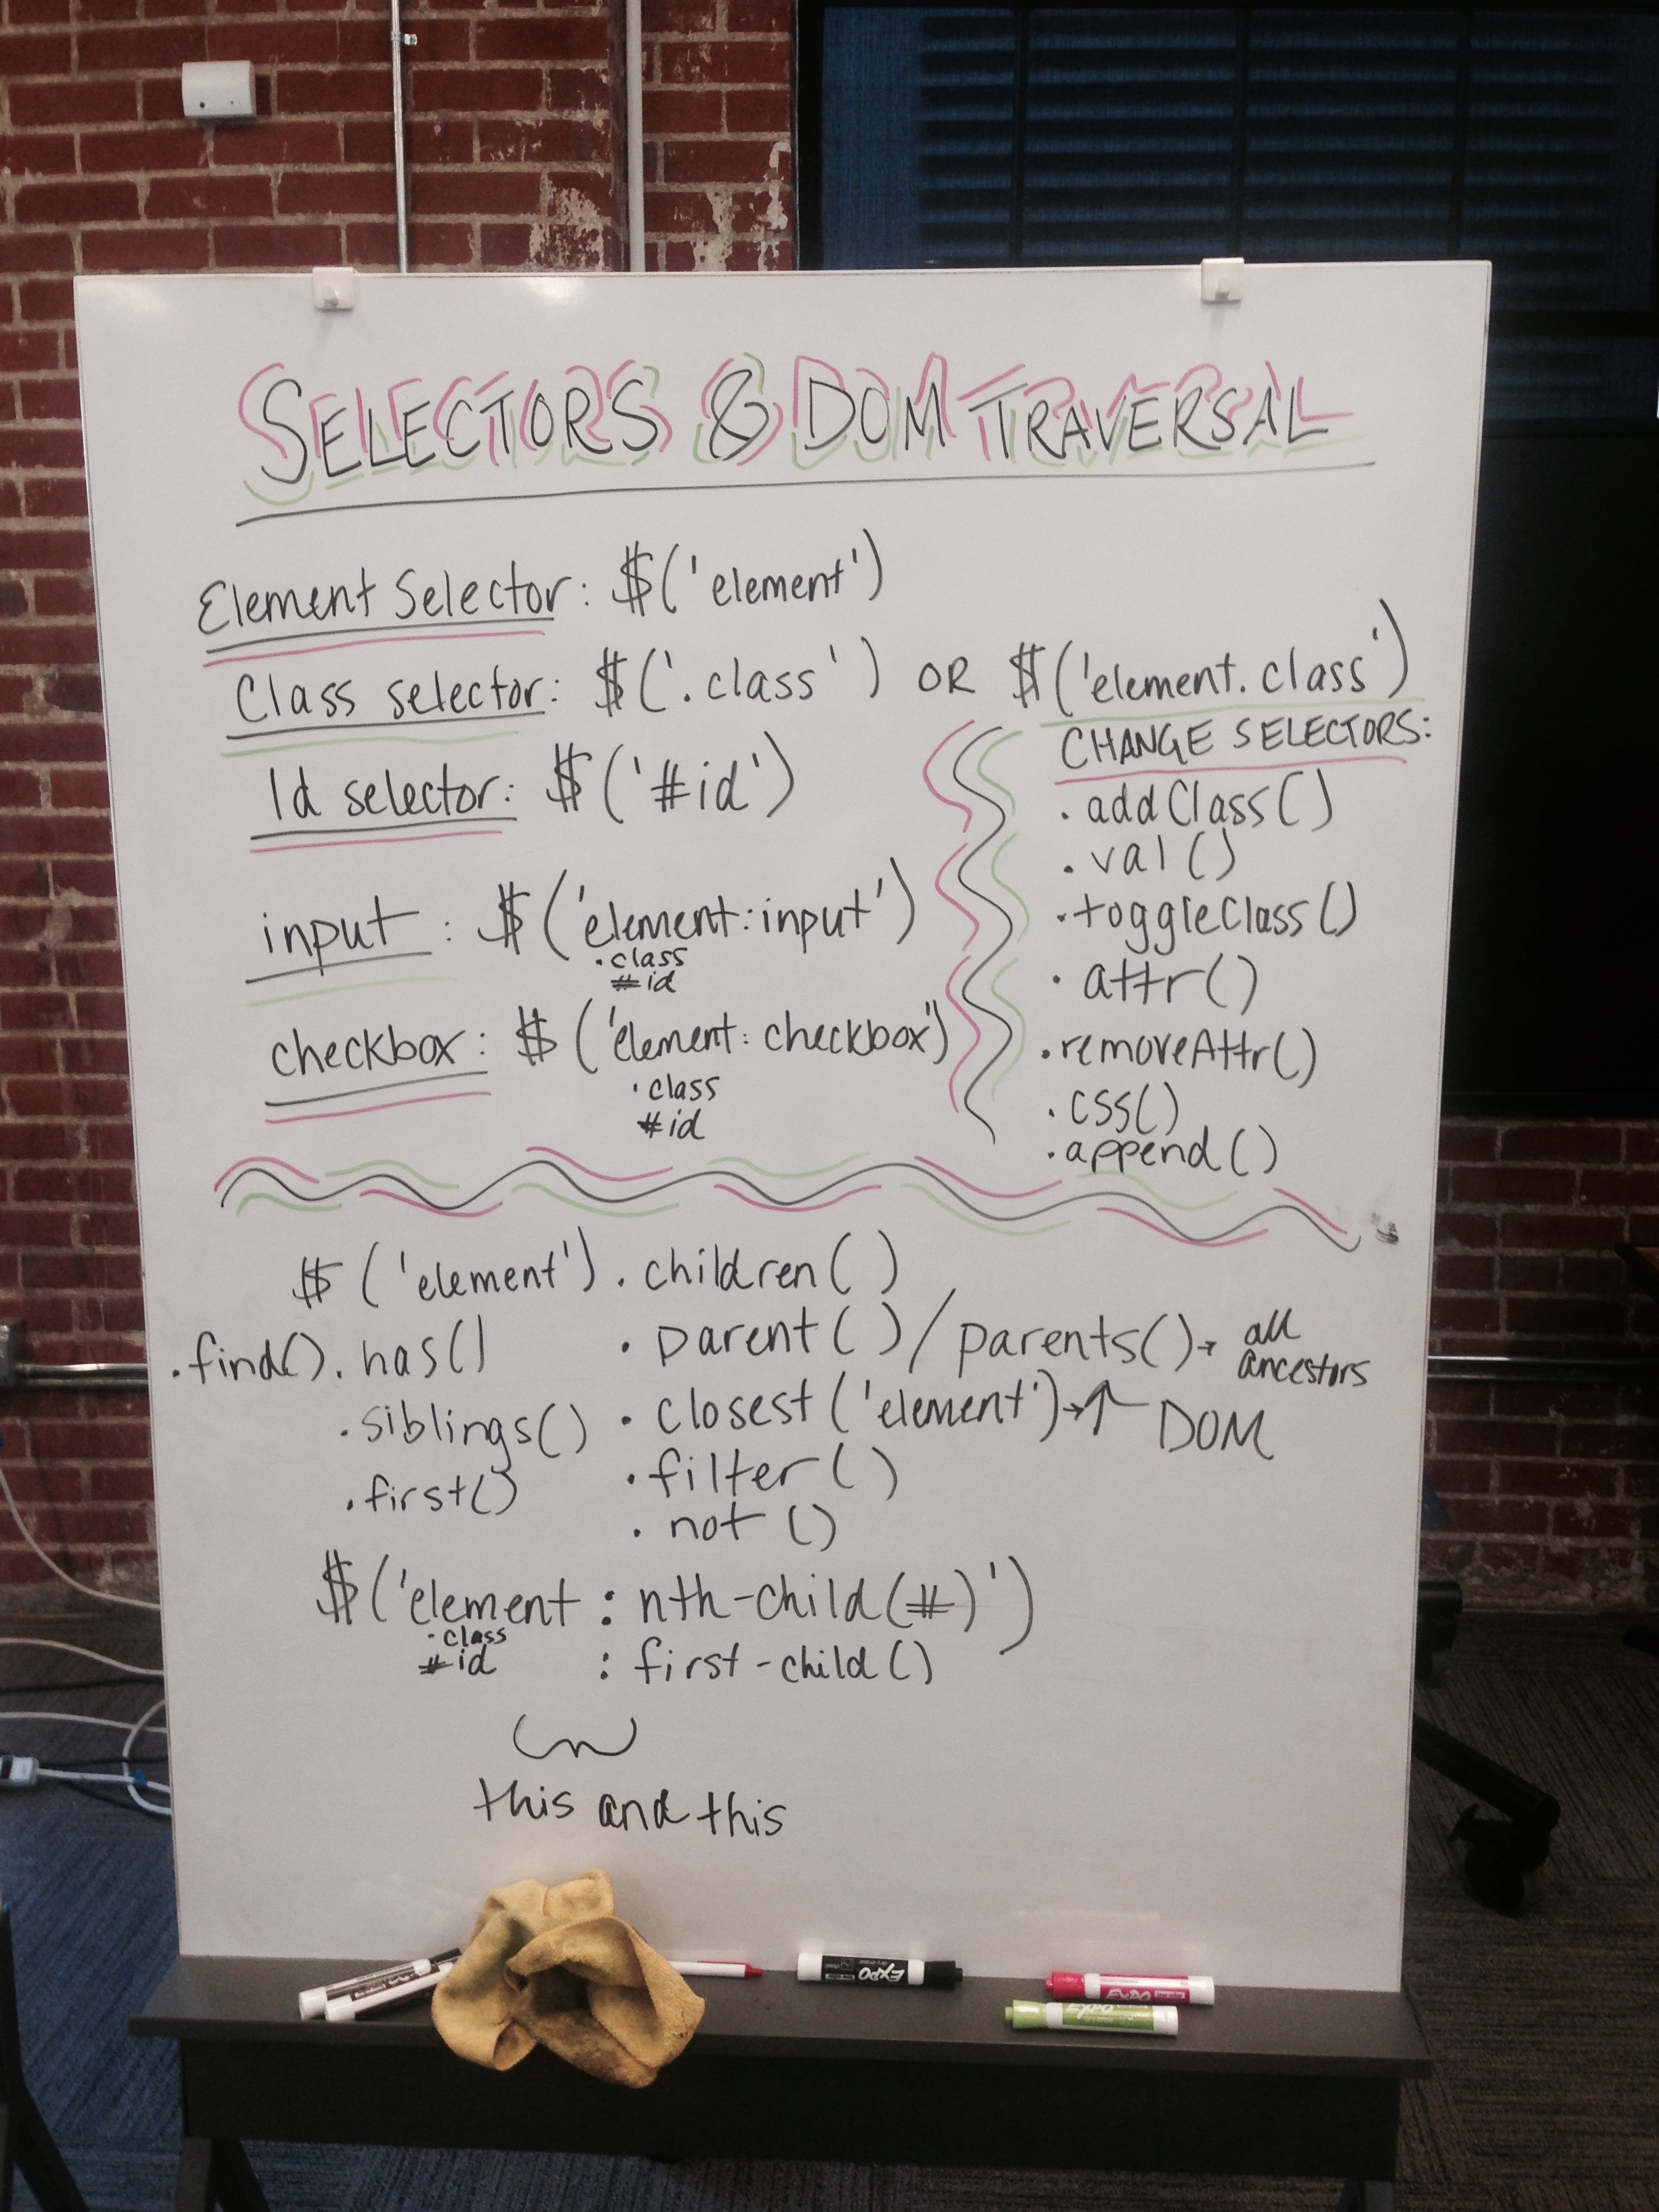 SELECTORS & DOM TRAVERSAL
Element Selector: $('element')
Class selector: $('.class') OR $('element.class')
Id selector: $('#id')
input: $('element:input')
.class
#id
checkbox: $('element:checkbox')
.class
#id
CHANGE SELECTORS:
.addClass()
.val()
.toggleClass()
.attr()
.removeAttr()
.css()
.append()
$('element').children()
.find().has()
.siblings()
.first()
.parent()/parents()→ all ancestors
.closest('element')→↑ DOM
.filter()
.not()
$('element:nth-child(#)')
.class
#id
:first-child()
this and this
EXPO
EXPO
EXPO